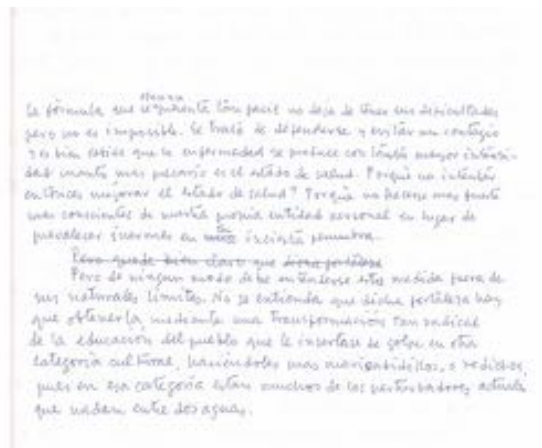 La fórmula que tan facil no deja de tener sus dificultades
pero no es imposible. Se trata de defenderse y evitar un contagio
y es bien sabido que la enfermedad se produce con tanta mayor intensi-
dad cuanto mas precario es el estado de salud. Porqué no intentar
entonces mejorar el estado de salud? Porqué no hacerse mas fuerte
mas conscientes de nuestra propia entidad personal en lugar de
inermes en incierta penumbra.
Pero quede bien claro que dicha fortaleza
Pero de ningun modo debe entenderse esta medida fuera de
sus naturales límites. No se entienda que dicha fortaleza hay
que obtenerla mediante una transformación tan radical
de la educación del pueblo que le insertase de golpe en otra
categoría cultural, haciéndoles mas o redichos,
pues en esa categoría estan muchos de los perturbadores actuales
que nadan entre dos aguas.